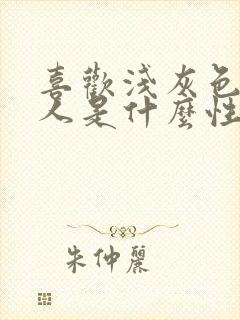 喜歡淺灰色
人是什麼性
朱仲麗